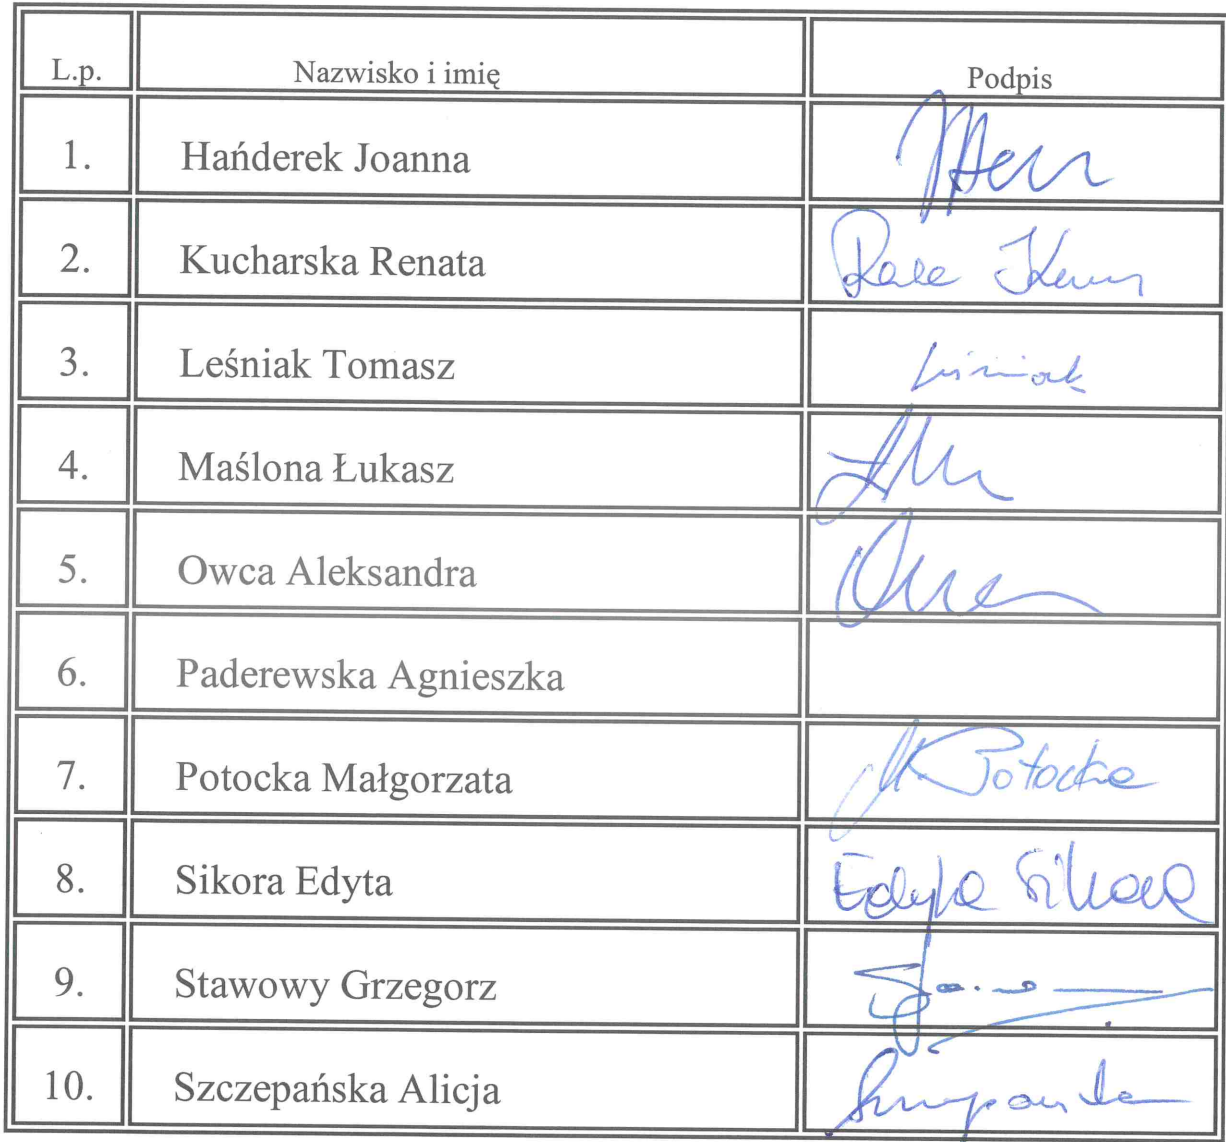 L.p. Nazwisko i imię Podpis
1. Hańderek Joanna
2. Kucharska Renata
3. Leśniak Tomasz Leśniak
4. Maślona Łukasz
5. Owca Aleksandra
6. Paderewska Agnieszka
7. Potocka Małgorzata Potocka
8. Sikora Edyta Edyta Sikora
9. Stawowy Grzegorz
10. Szczepańska Alicja